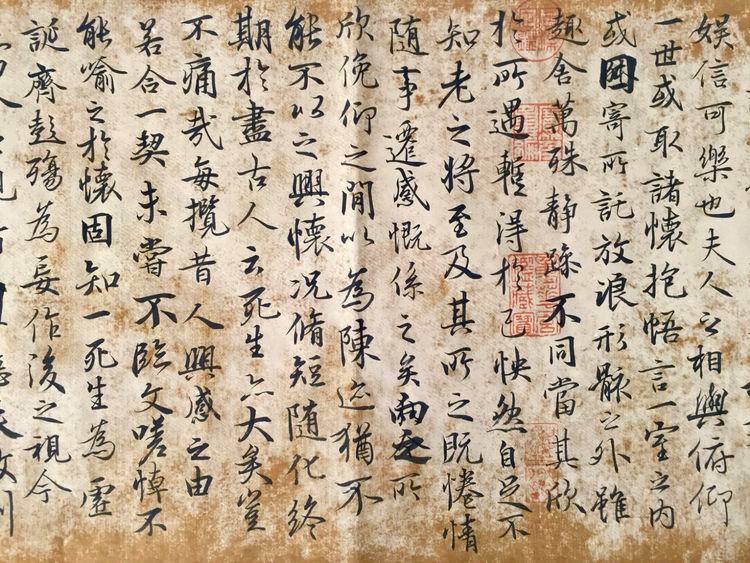 娱信可樂也夫人之相與俯仰
一世或取諸懷抱悟言一室之内
或因寄所託放浪形骸之外雖
趣舍萬殊静躁不同當其欣
於所遇暫得於己怏然自足不
知老之将至及其所之既惓情
随事遷感慨係之矣向之所
欣俛仰之間以為陳迹猶不
能不以之興懷况脩短随化終
期於盡古人云死生亦大矣豈
不痛哉每攬昔人興感之由
若合一契未嘗不臨文嗟悼不
能喻之於懷固知一死生為虚
誕齊彭殤為妄作後之視今